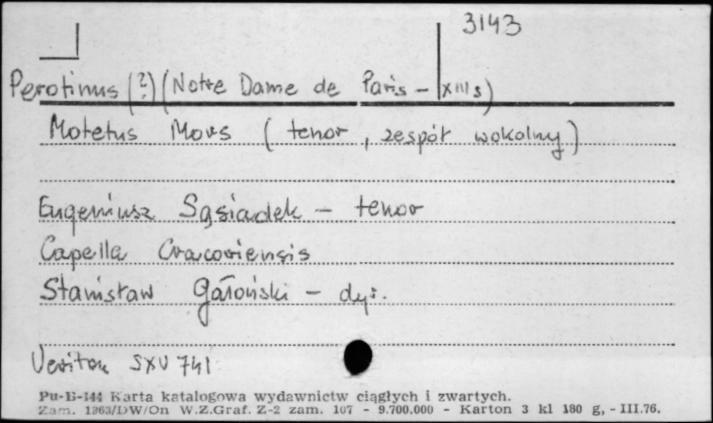 3143
Perotinus (?) (Notre Dame de Paris - XIII s)
Motetus Mors (tenor, zespół wokalny)
Eugeniusz Sąsiadek - tenor
Capella Cracoviensis
Stanisław Gałoński - dyr.
Veriton SXV 741
Pu-B-144 Karta katalogowa wydawnictw ciągłych i zwartych.
Zam. 1363/DW/On W.Z.Graf. Z-2 zam. 107 - 9.700.000 - Karton 3 kl 180 g, - III.76.